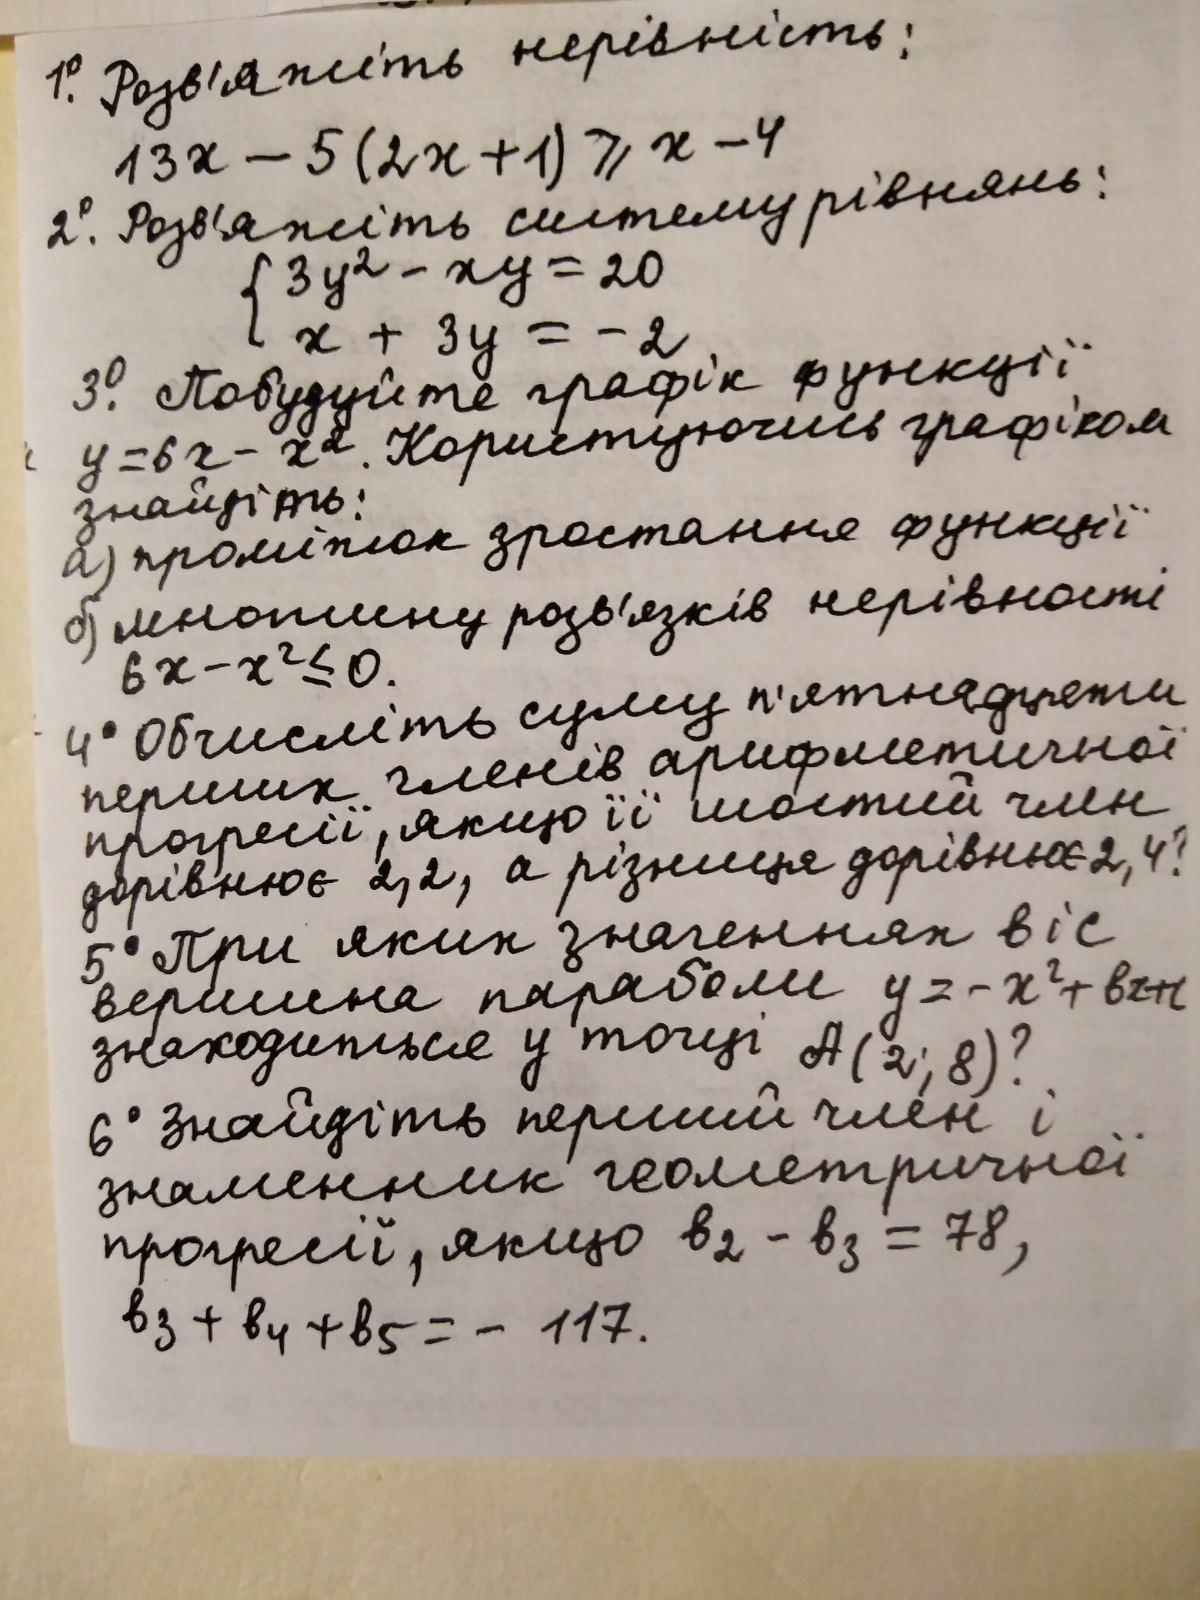 1⁰. Розв'яжіть нерівність:
13x – 5(2x+1) ⩾ x – 4
2⁰. Розв'яжіть систему рівнянь:
{ 3y² – xy = 20
x + 3y = – 2
3⁰. Побудуйте графік функції
y=6x – x². Користуючись графіком
знайдіть:
а) проміжок зростання функції
б) множину розв'язків нерівності
6x – x² ≤ 0.
4° Обчисліть суму п'ятнадцяти
перших членів арифметичної
прогресії, якщо її шостий член
дорівнює 2,2, а різниця дорівнює 2,4?
5° При яких значеннях в і с
вершина параболи y = – x² + вx+c
знаходиться у точці A(2; 8)?
6° Знайдіть перший член і
знаменник геометричної
прогресії, якщо в₂ – в₃ = 78,
в₃ + в₄ + в₅ = – 117.